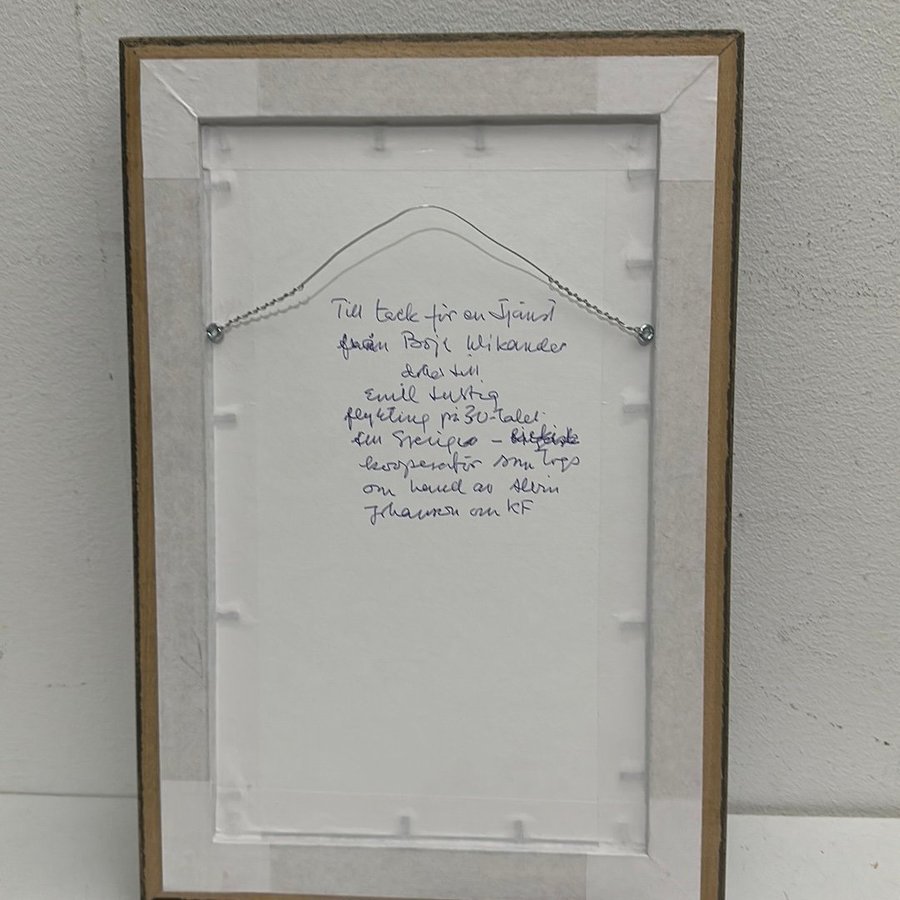 Till tack för en tjänst
från Boje Wikander
Emill Lustig
flykting på 30-talet
till Sverige –
kooperatör som togs
om hand av Albin
Johansson om KF